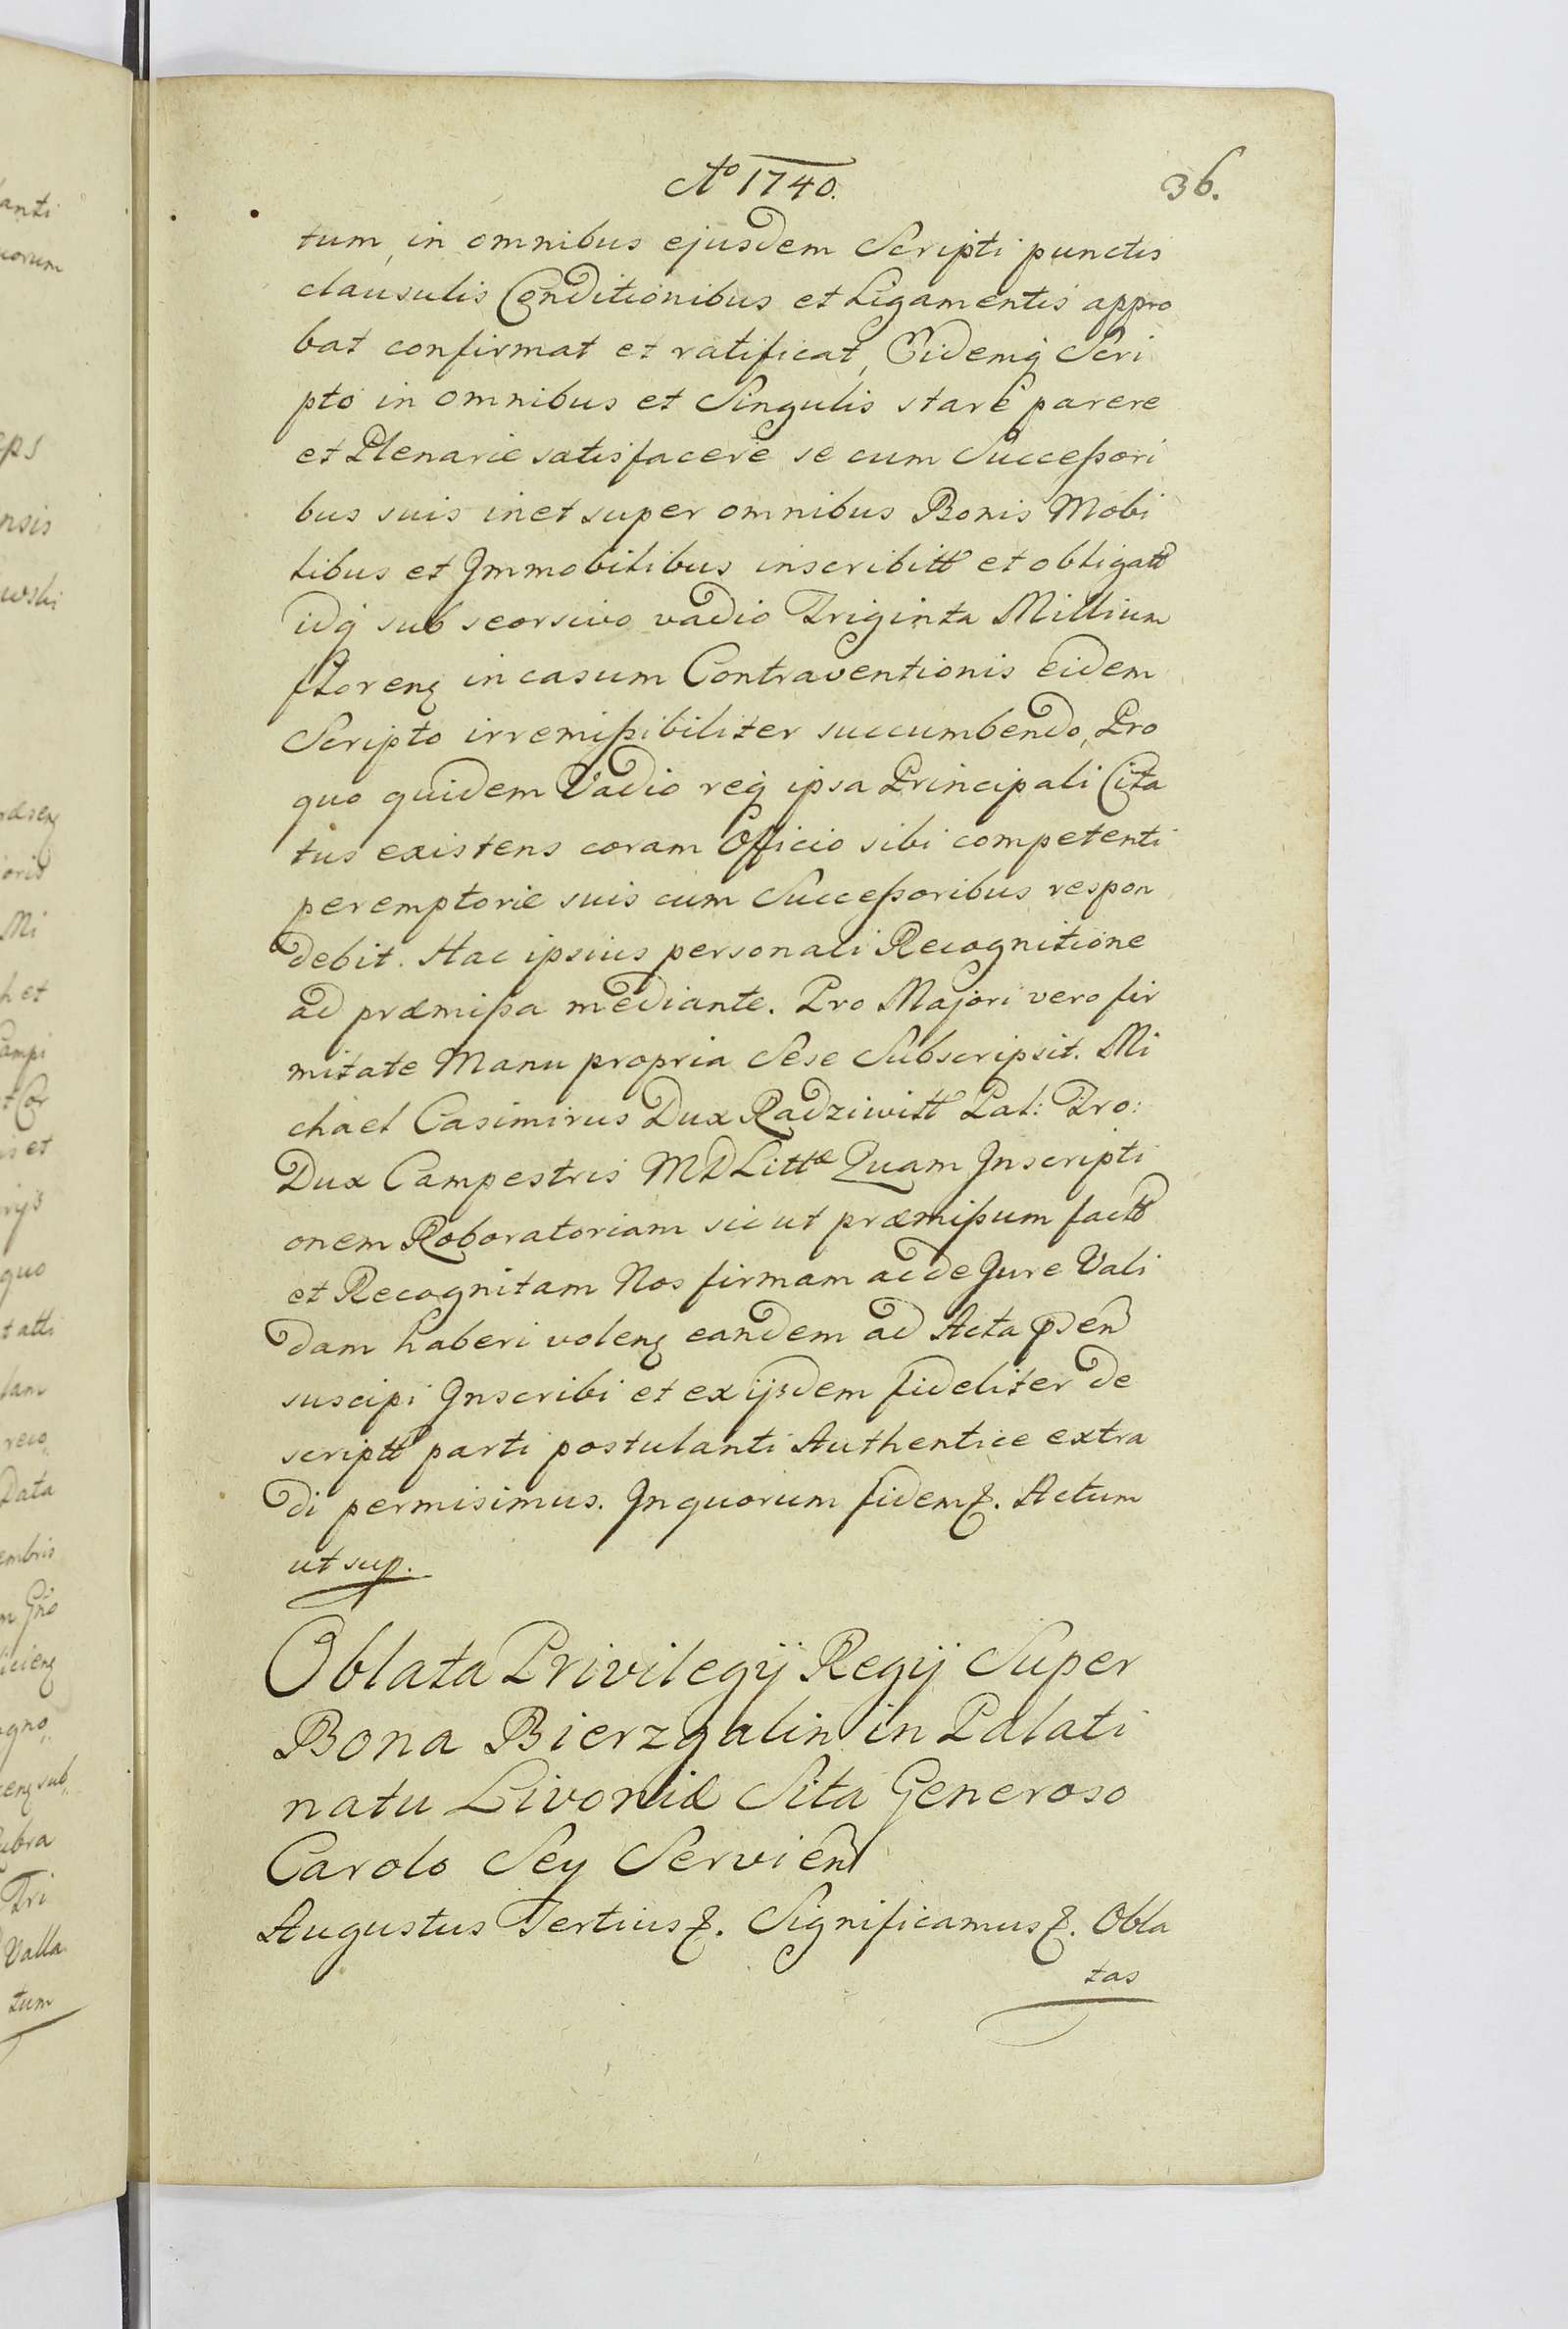 Aō 1740.
36.
tum, in omnibus ejusdem Scripti punctis
clausulis Conditionibus et Ligamentis appro
bat confirmat et ratificat, Eidemq Scri
pto in omnibus et Singulis stare parere
et Plenarie satisfacere se cum Successori
bus suis in et super omnibus Bonis Mobi
libus et Immobilibus inscribitt et obligatt
idq sub seorsivo vadio Triginta Millium
floreng in casum Contraventionis eidem
Scripto irremissibiliter succumbendo, Pro
quo quidem Vadio req ipsa Principali Cita
tus existens coram Officio sibi competenti
peremptorie suis cum Successoribus respon
debit. Hac ipsius personali Recognitione
ad præmissa mediante. Pro Majori vero fir
mitate Manu propria Sese Subscripsit. Mi
chael Casimirus Dux Radziwill Pal: Tro:
Dux Campestris MDLittæ Quam Inscripti
onem Roboratoriam sic ut præmissum factt
et Recognitam Nos firmam ac de Jure Vali
dam haberi voleng eandem ad Acta pſen
suscipi Inscribi et ex ijsdem fideliter de
scriptt parti postulanti Authentice extra
di permisimus. In quorum fidem &. Actum
ut sup.
Oblata Privilegij Regij Super
Bona Bierzgalin in Palati
natu Livoniæ Sita Generoso
Carolo Sey Servien
Augustus Tertius &. Significamus &. Obla
tas
anti
uorum
eps
nsis
wski
Mi
h et
ampi
t Cor
is et
quo
t atti
lam
reco
Data
embris
agno
eng sub
ubra
Tri
Valla
tum